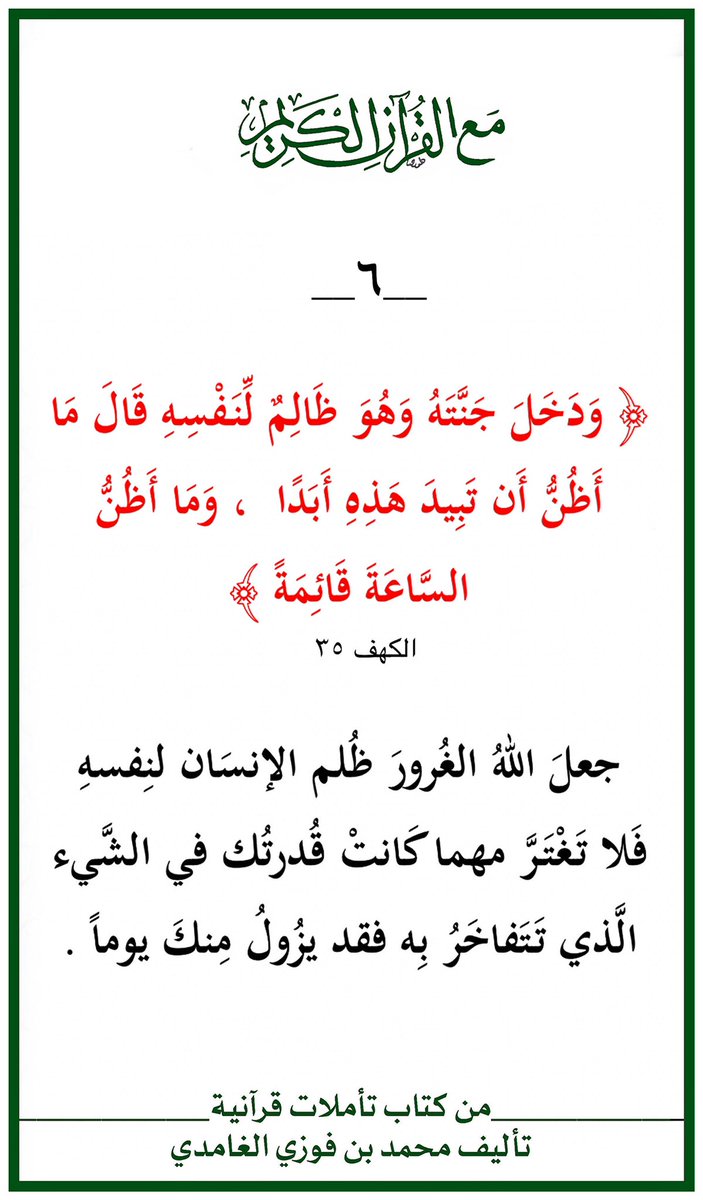 مَع القُرآنِ الكَرِيمِ
__٦__
﴿ وَدَخَلَ جَنَّتَهُ وَهُوَ ظَالِمٌ لِّنَفْسِهِ قَالَ مَا
أَظُنُّ أَن تَبِيدَ هَذِهِ أَبَدًا ، وَمَا أَظُنُّ
السَّاعَةَ قَائِمَةً ﴾
الكهف ٣٥
جعلَ اللهُ الغُرورَ ظُلم الإنسَان لنِفسهِ
فَلا تَغْتَرَّ مهما كَانتْ قُدرتُك في الشَّيء
الَّذي تَتَفاخَرُ بِه فقد يزُولُ مِنكَ يوماً .
من كتاب تأملات قرآنية
تأليف محمد بن فوزي الغامدي